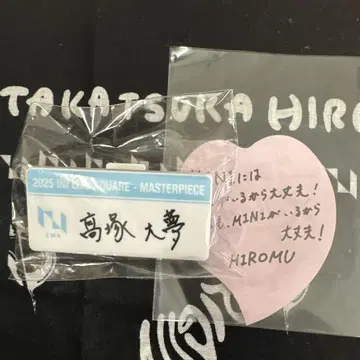 TAKATSUKA HIRO
2025 INI SQUARE - MASTERPIECE
髙塚 大夢
MINIには
いるから大丈夫！
も、MINIがいるから
大丈夫！
HIROMU